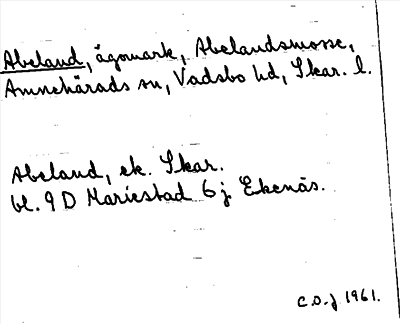 Abeland, ägomark, Abelandsmosse,
Amnehärads sn, Vadsbo hd, Skar. l.
Abeland, ek. Skar.
bl. 9 D Mariestad 6 j Ekenäs.
C.O.J 1961.